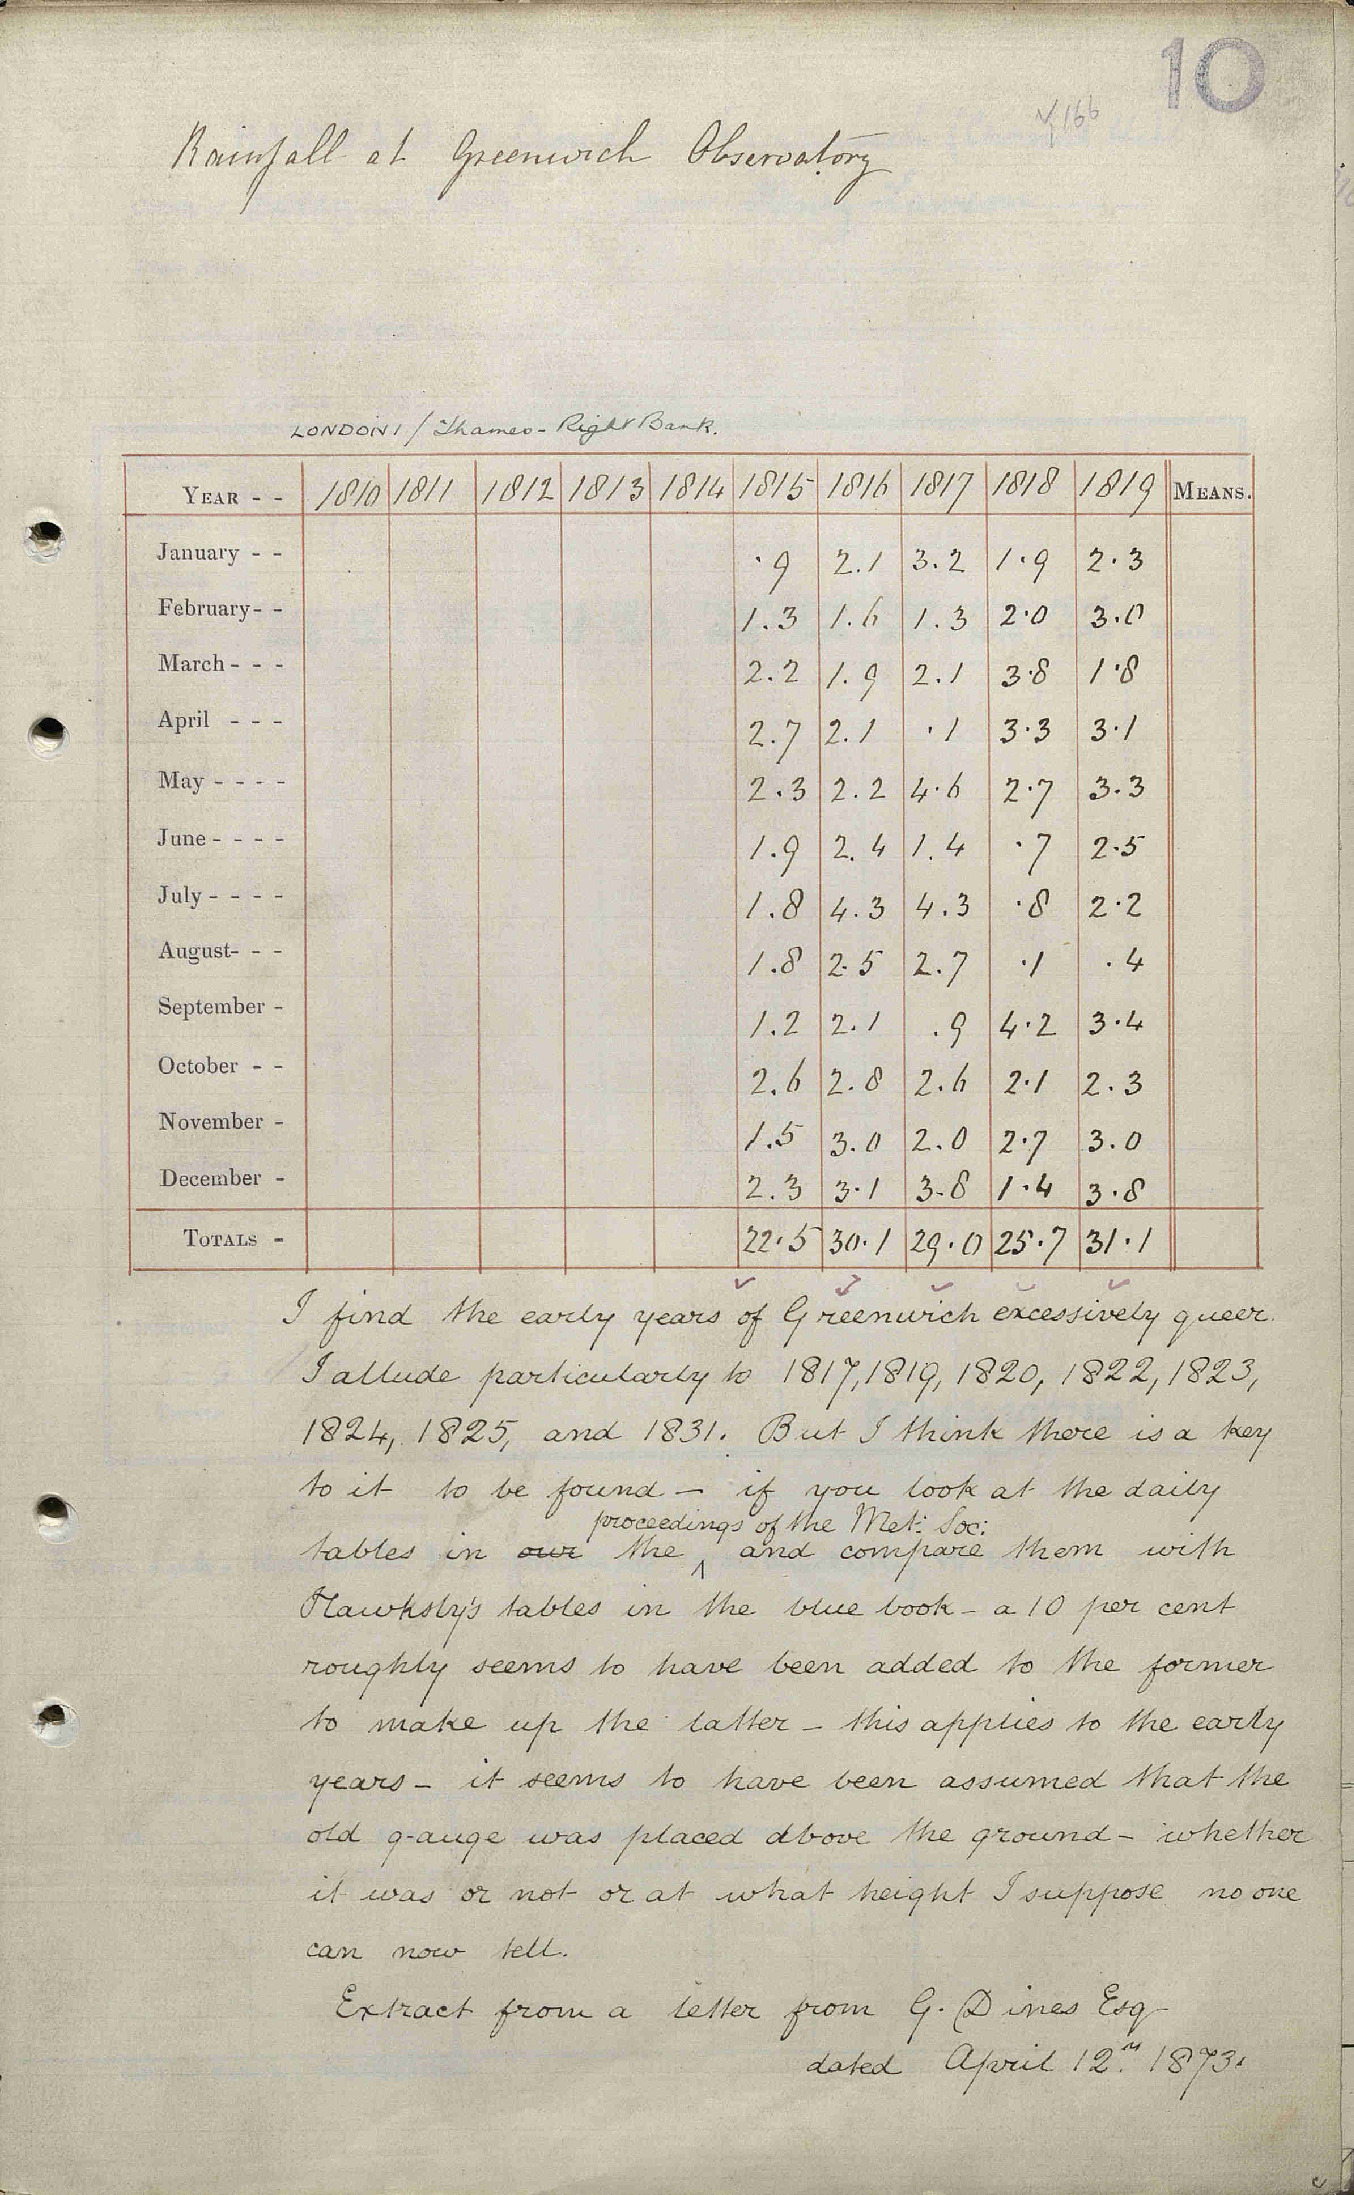 10
Rainfall at Greenwich Observatory
LONDON 1 / Thames - Right Bank.
YEAR - - 1810 1811 1812 1813 1814 1815 1816 1817 1818 1819 MEANS.
January - - ·9 2.1 3.2 1·9 2·3
February - - 1.3 1.6 1.3 2·0 3.0
March - - - 2.2 1.9 2.1 3·8 1·8
April - - - 2.7 2.1 ·1 3·3 3·1
May - - - - 2.3 2.2 4·6 2·7 3.3
June - - - - 1.9 2.4 1.4 ·7 2·5
July - - - - 1.8 4.3 4.3 ·8 2·2
August- - - 1.8 2·5 2.7 ·1 ·4
September - 1.2 2.1 .9 4·2 3·4
October - - 2.6 2.8 2.6 2·1 2.3
November - 1.5 3.0 2.0 2·7 3.0
December - 2.3 3·1 3·8 1·4 3·8
TOTALS - 22·5 30·1 29·0 25·7 31·1
I find the early years of Greenwich excessively queer.
I allude particularly to 1817, 1819, 1820, 1822, 1823,
1824, 1825, and 1831. But I think there is a key
to it to be found – if you look at the daily
proceedings of the Met: Soc:
tables in our the ^ and compare them with
Hawksby's tables in the blue book – a 10 per cent
roughly seems to have been added to the former
to make up the latter – this applies to the early
years – it seems to have been assumed that the
old gauge was placed above the ground – whether
it was or not or at what height I suppose no one
can now tell.
Extract from a letter from G. Dines Esq
dated April 12th 1873.